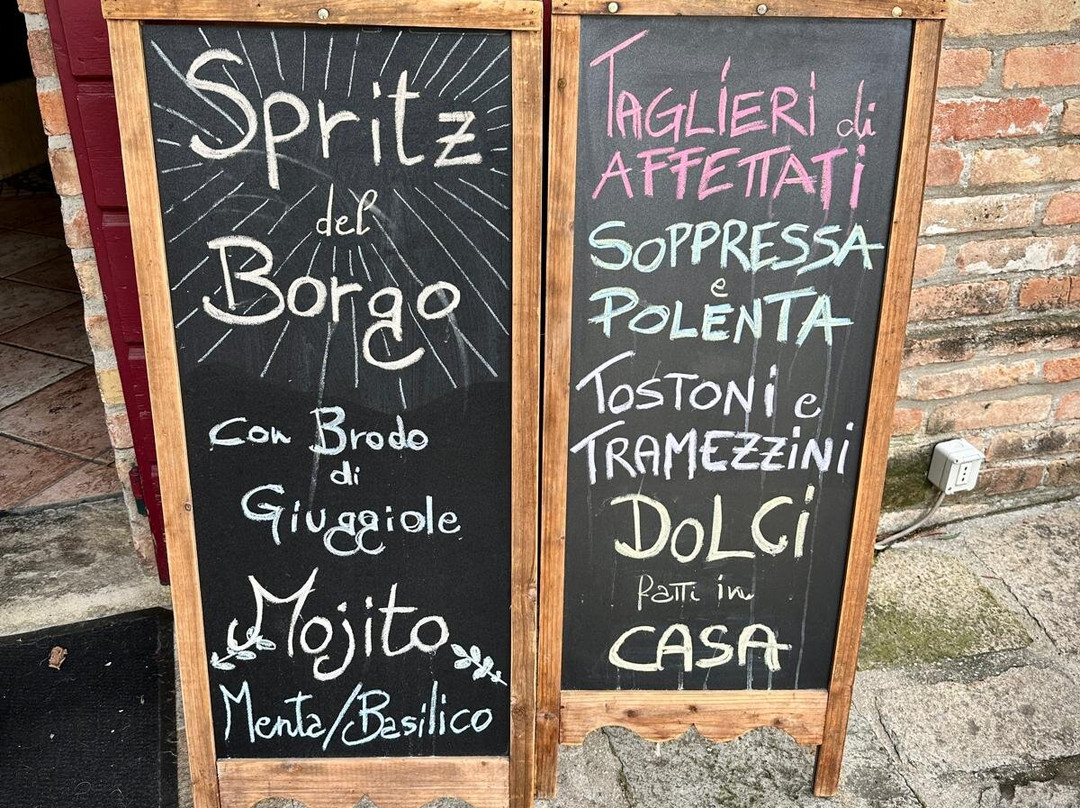 Spritz
del
Borgo
con Brodo
di
Giuggiole
Mojito
Menta/Basilico
TAGLIERI di
AFFETTATI
SOPPRESSA
e
POLENTA
TOSTONI e
TRAMEZZINI
DOLCI
fatti in
CASA